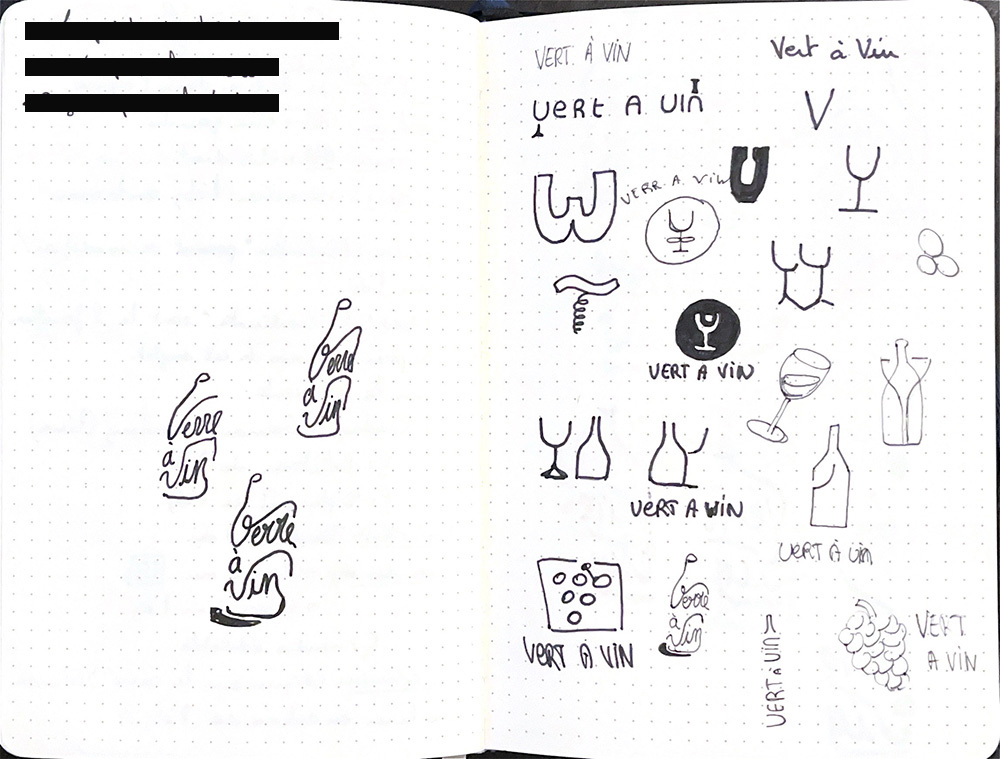 Verre
à
Vin
Verre
à
Vin
Verre
à
Vin
VERT À VIN
Vert à Vin
VERT A VIN
V
VERR A VIN
VERT A VIN
VERT A WIN
VERT À VIN
VERT À VIN
Verre
à
Vin
VERT À VIN
VERT
A VIN